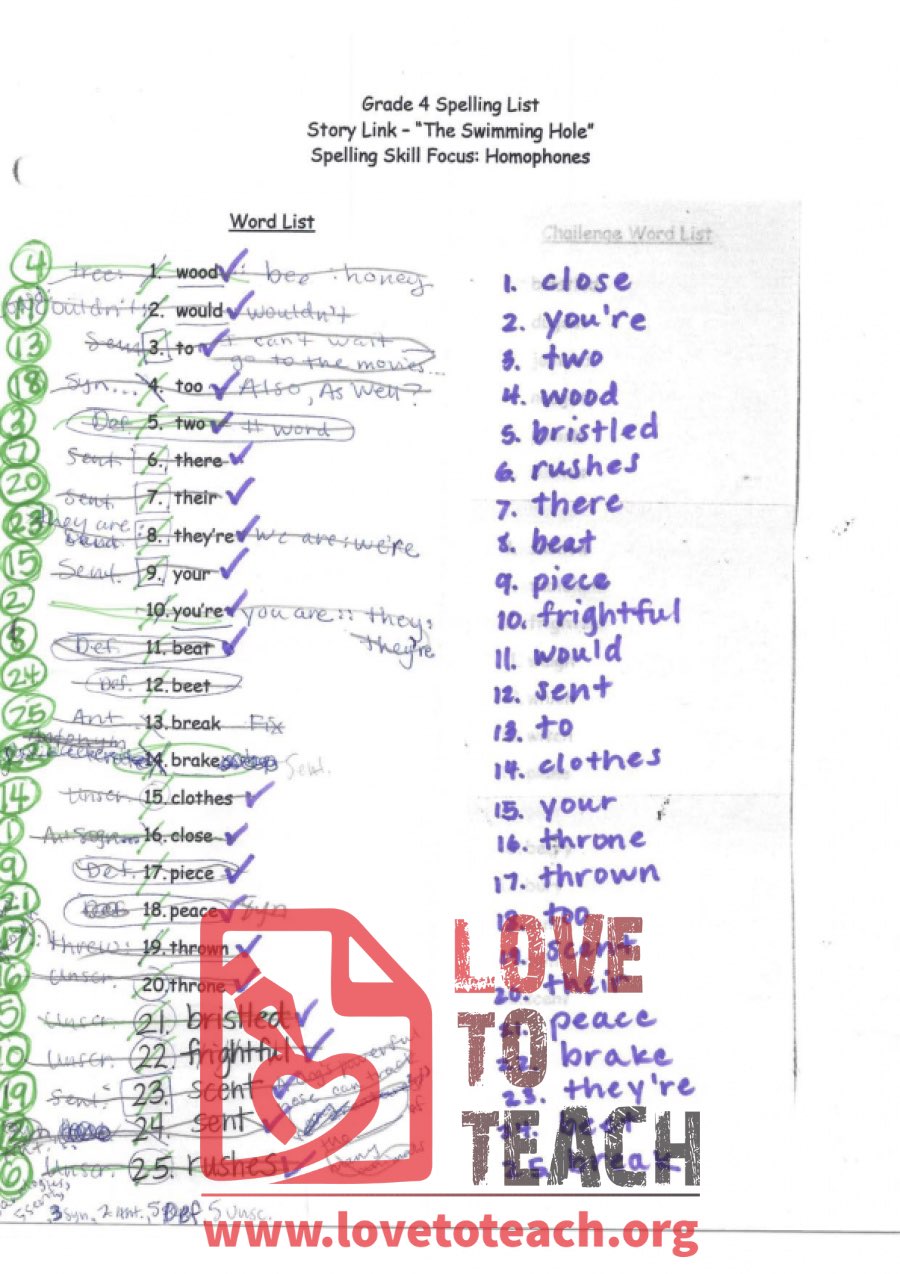 Grade 4 Spelling List
Story Link – "The Swimming Hole"
Spelling Skill Focus: Homophones
Word List
Challenge Word List
4 tree: 1. wood : bee : honey
2. would wouldn't
13 Sent. 3. to I can't wait
go to the movies...
18 Syn... 4. too Also, As Well?
3 Def. 5. two # word
7 Sent. 6. there
20 Sent. 7. their
23 they are :
8. they're we are : we're
15 Sent. 9. your
2 10. you're you are :: they:
they're
8 Def. 11. beat
24 Def. 12. beet
25 Ant. 13. break Fix
14. brake Sent.
14 Unscr. 15. clothes
1 16. close
9 Def. 17. piece
21 18. peace Syn
threw: 19. thrown
16 Unscr. 20. throne
5 Unscr. 21. bristled
10 Unscr. 22. frightful
19 Sent. 23. scent
12 24. sent
6 Unscr. 25. rushes
3 Syn, 2 Ant., 5 Def 5 Unsc.
1. close
2. you're
3. two
4. wood
5. bristled
6. rushes
7. there
8. beat
9. piece
10. frightful
11. would
12. sent
13. to
14. clothes
15. your
16. throne
17. thrown
18. too
19. scent
20. their
21. peace
22. brake
23. they're
24. beet
25. break
LOVE
TO
TEACH
www.lovetoteach.org